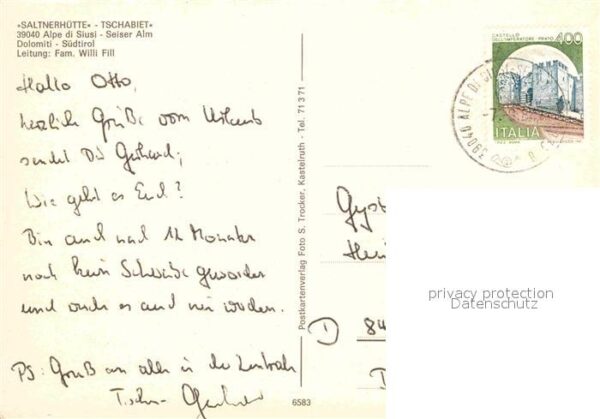 »SALTNERHÜTTE« - TSCHABIET«
39040 Alpe di Siusi - Seiser Alm
Dolomiti - Südtirol
Leitung: Fam. Willi Fill
Hallo Otto,
herzliche Grüße vom Urlaub
sendet Dir Gerhard;
Wie geht es Euch?
Bin auch nach 12 Monaten
noch kein Schwabe geworden
und werde es auch nie werden.
PS: Gruß an alle in der Zentrale
Postkartenverlag Foto S. Trocker, Kastelruth - Tel. 71371
6583
CASTELLO
DELL'IMPERATORE PRATO
400
ITALIA
39040 ALPE DI
D
84
privacy protection
Datenschutz